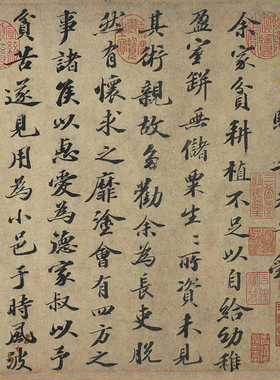 余家貧耕植不足以自給幼稚
盈室缾無儲粟生〻所資未見
其術親故多勸余為長吏脫
然有懷求之靡塗會有四方之
事諸侯以惠愛為德家叔以予
貧苦遂見用為小邑于時風波